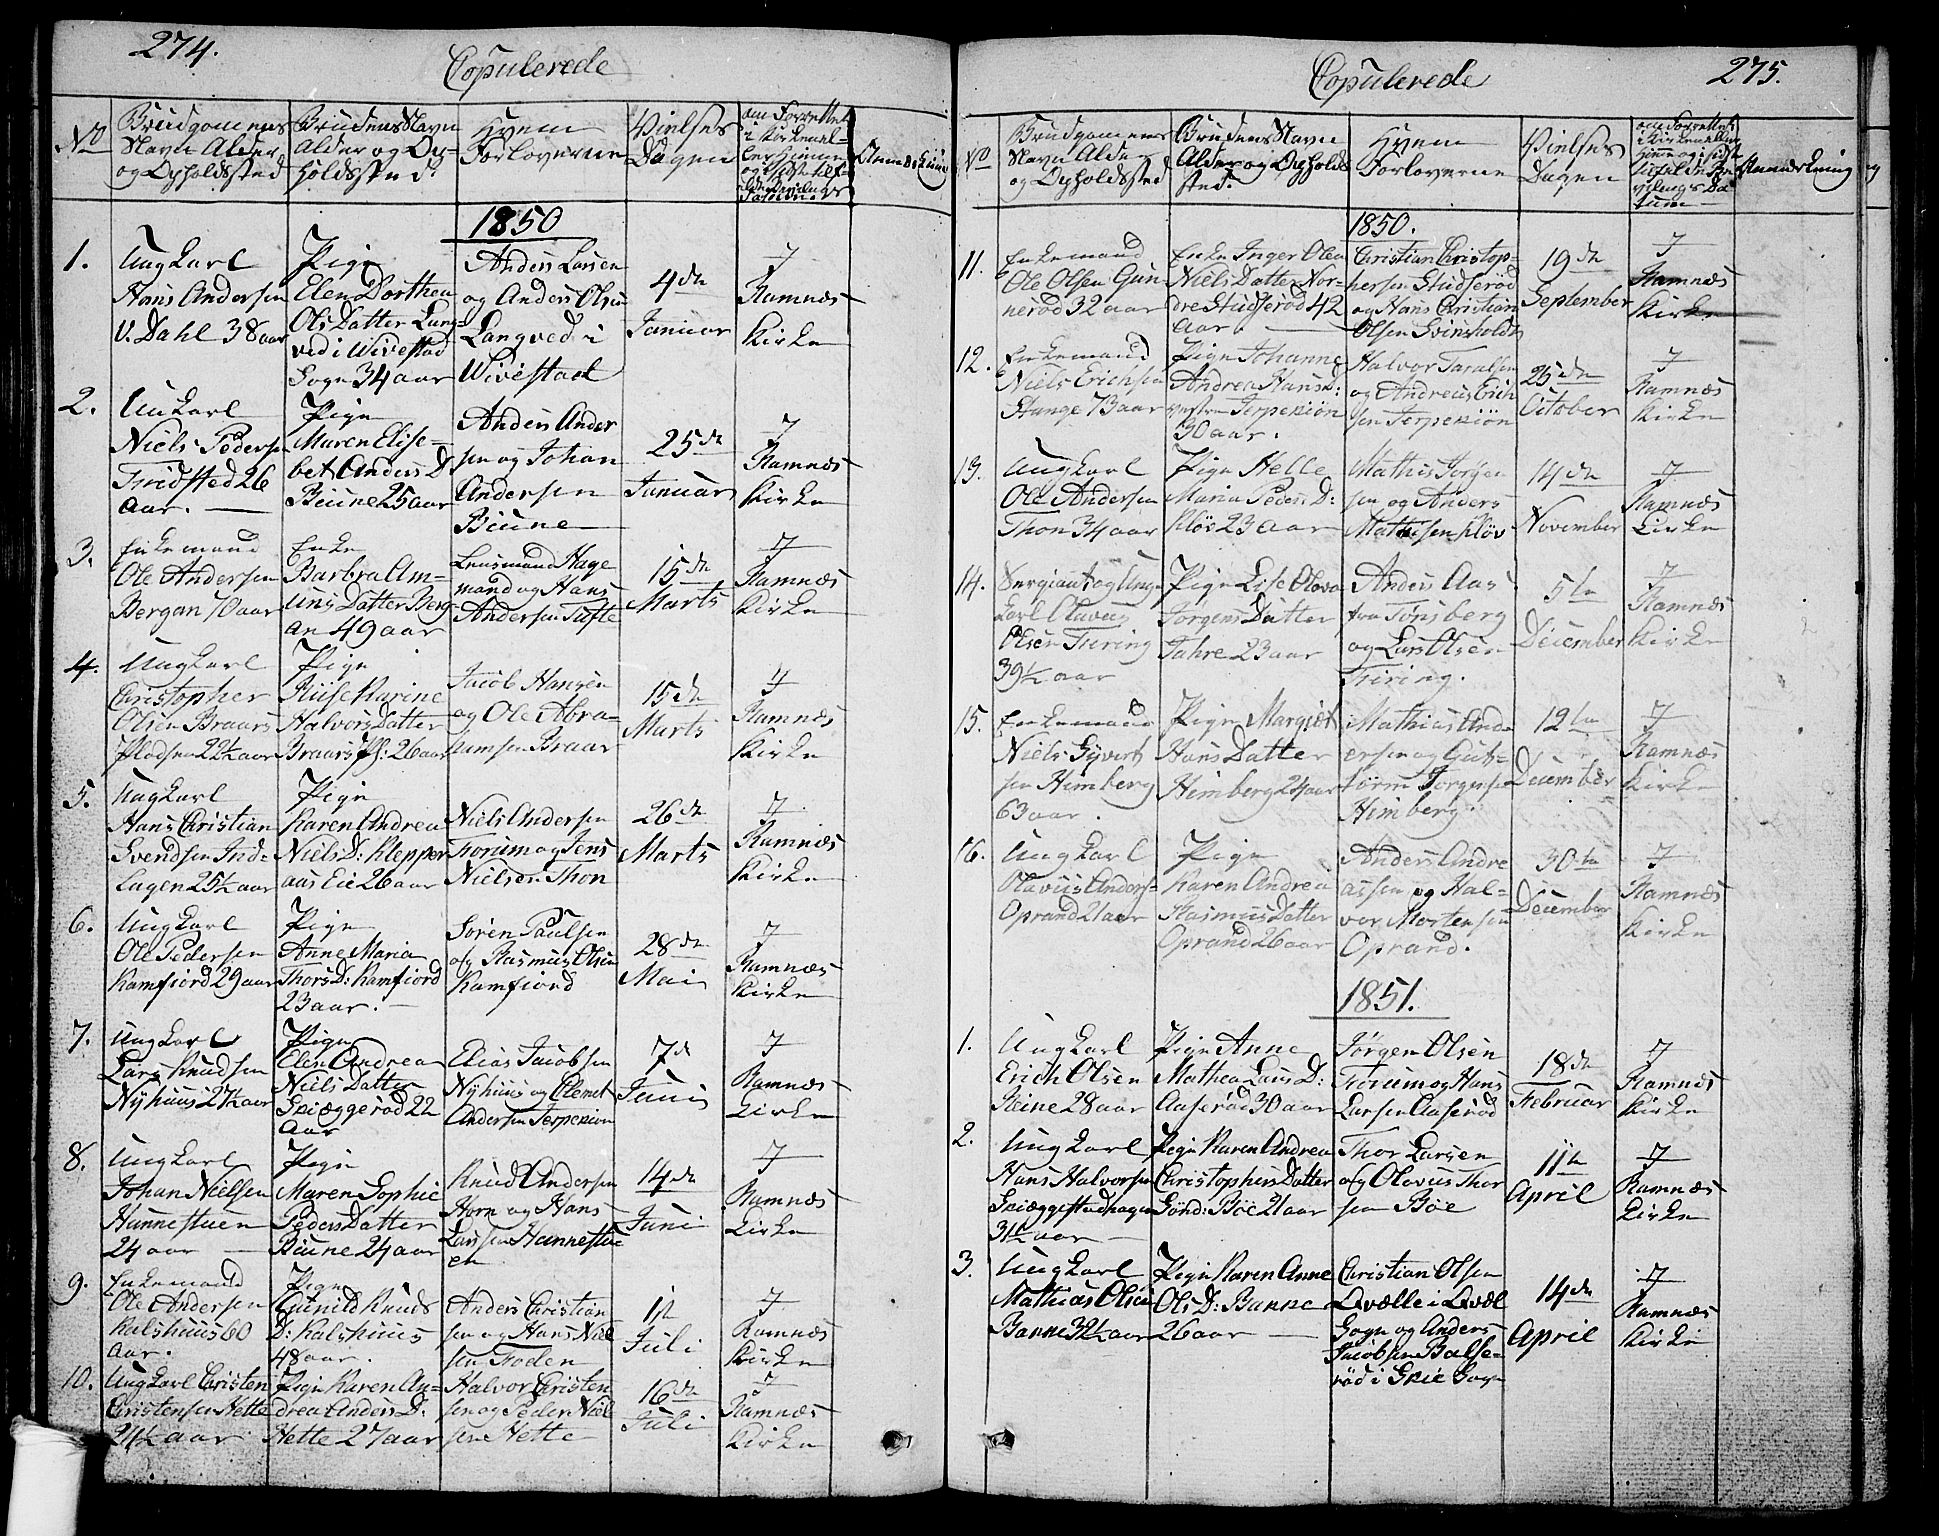 274.
Copulerede
No
Brudgomens
Navn Alder
og Opholdssted
Brudens Navn
Alder og Op-
holdssted
Hvem
Forloverne
Vielses
Dagen
om Forrettet
i Kirken el-
Anmærkning
1850
1.
Ungkarl
Hans Andersen
V. Dahl 38 aar
Pige
Elen Dorthea
Ols Datter Lang-
ved i Wivestad
Sogn 34 aar
Anders Larsen
og Anders Olsen
Langved i
Wivestad
4de
Januar
i
Ramnæs
Kirke
2.
Unkarl
Niels Pedersen
Fridsted 26
aar.
Pige
Maren Elise-
bet Anders D
Biune 25 aar
Anders Ander
sen og Johan
Andersen
Biune
25de
Januar
i
Ramnæs
Kirke
3.
Enkemand
Ole Andersen
Bergan 70 aar
Enke
Barbra Am-
uns Datter Berg-
an 49 aar
Lensmand Hage
mand og Hans
Andersen Tufte
15de
Marts
i
Ramnæs
Kirke
4.
Ungkarl
Christopher
Olsen Braars
Pladsen 22½ aar
Pige
Riise Karine
Halvors Datter
Braars Pl: 26 aar
Jacob Hansen
og Ole Abra-
humsen Braar
15de
Marts
i
Ramnæs
Kirke
5.
Ungkarl
Hans Christian
Svendsen Ind-
Lagen 25½ aar
Pige
Karen Andrea
Niels D: Klepper
aas Eie 26 aar
Niels Andersen
Forum og Jens
Nielsen Thon
26de
Marts
i
Ramnæs
Kirke
6.
Ungkarl
Ole Pedersen
Ramfiord 29 aar
Pige
Anne Maria
Thors D: Ramfiord
23 aar.
Søren Paulsen
og Rasmus Olsen
Ramfiord
28de
Mai
i
Ramnæs
Kirke
7.
Ungkarl
Lars Knudsen
Nyhuus 27½ aar
Pige
Elen Andrea
Niels Datter
Skiæggerød 22
Aar
Elias Jacobsen
Nyhuus og Clemet
Andersen Terpekiøn
7d
Juni
i
Ramnæs
Kirke
8.
Ungkarl
Johan Nielsen
Hunnestuen
24 aar
Pige
Maren Sophie
Peders Datter
Biune 24 aar
Knud Andersen
Horn og Hans
Larsen Hannestu-
en
14de
Juni
i
Ramnæs
Kirke
9.
Enkemand
Ole Andersen
Kalshuus 60
aar.
Pige
Gunild Knuds
D: Kalshuus
48 aar.
Anders Christian
sen og Hans Niel
sen Foden
1st
Juli
i
Ramnæs
Kirke
10.
Ungkarl Christen
Christensen Hette
24½ aar
Pige Karen An-
drea Anders D:
Hette 27 aar
Halvor Christen
sen og Peder Niel
sen Hette
16de
Juli
i
Ramnæs
Kirke
275.
Copulerede
No
Brudgomens
Navn Alder
og Opholdssted
Brudens Navn
Alder og Opholds
sted.
Hvem
Forloverne
Vielses
Dagen
om Forrettet
Anmærkning
1850.
11.
Enkemand
Ole Olsen Gun-
nerød 32 aar
Enke Inger Olea
Niels Datter Nor-
dre Studserød 42
aar.
Christian Christop-
hersen Studserød
og Hans Christian
Olsen Svinsholdt
19de
September
i
Ramnæs
Kirke
12.
Enkemand
Niels Erichsen
Stange 73 aar
Pige Johanne
Andrea Hans D:
vestre Terpekiøn
30 aar.
Halvor Taralsen
og Andreas Erich
sen Terpekiøn
25de
October
i
Ramnæs
Kirke
13.
Ungkarl
Ole Andersen
Thon 34 aar
Pige Helle
Maria Peders D:
Kløv 23 aar
Mathis Torjer
sen og Anders
Mathisen Kløv
14de
November
i
Ramnæs
Kirke
14.
Sergiant og Ung-
karl Olaves
Olsen Firing
39½ aar
Pige Lise Olava
Jorgens Datter
Jahre 23 aar
Anders Aas
fra Tønsberg
og Lars Olsen
Firing.
5te
December
i
Ramnæs
Kirke
15.
Enkemand
Niels Syvert
sen Himberg
63 aar.
Pige Margret
Hans Datter
Himberg 24 aar
Mathias And-
ersen og Gut-
torm Jorgensen
Himberg.
12te
December
i
Ramnæs
Kirke
16.
Ungkarl
Olavus Anders-
Oprand 21 aar
Pige
Karen Andrea
Rasmus Datter
Oprand 26 aar
Anders Andre
assen og Hal-
vor Mortensen
Oprand.
30te
December
i
Ramnæs
Kirke
1851.
1.
Ungkarl
Erich Olsen
Steine 28 aar
Pige Anne
Mathea Lars D:
Aaserød 30 aar
Jørgen Olsen
Forum og Hans
Larsen Aaserød
18de
Februar
i
Ramnæs
Kirke
2.
Ungkarl
Hans Halvorsen
Skiæggestadhagen
31½ aar
Pige Karen Andrea
Christophers Datter
Sønd: Bøe 21 aar
Thor Larsen
og Olavus Thor
sen Bøe
11te
April
i
Ramnæs
Kirke
3.
Ungkarl
Mathias Olsen
Banne 32½ aar
Pige Karen Anne
Ols D: Banne
26 aar
Christian Olsen
Qvælle i Qvæl
Sogn og Anders
Jacobsen Balse-
rød i Skie Sogn
14de
April
i
Ramnæs
Kirke